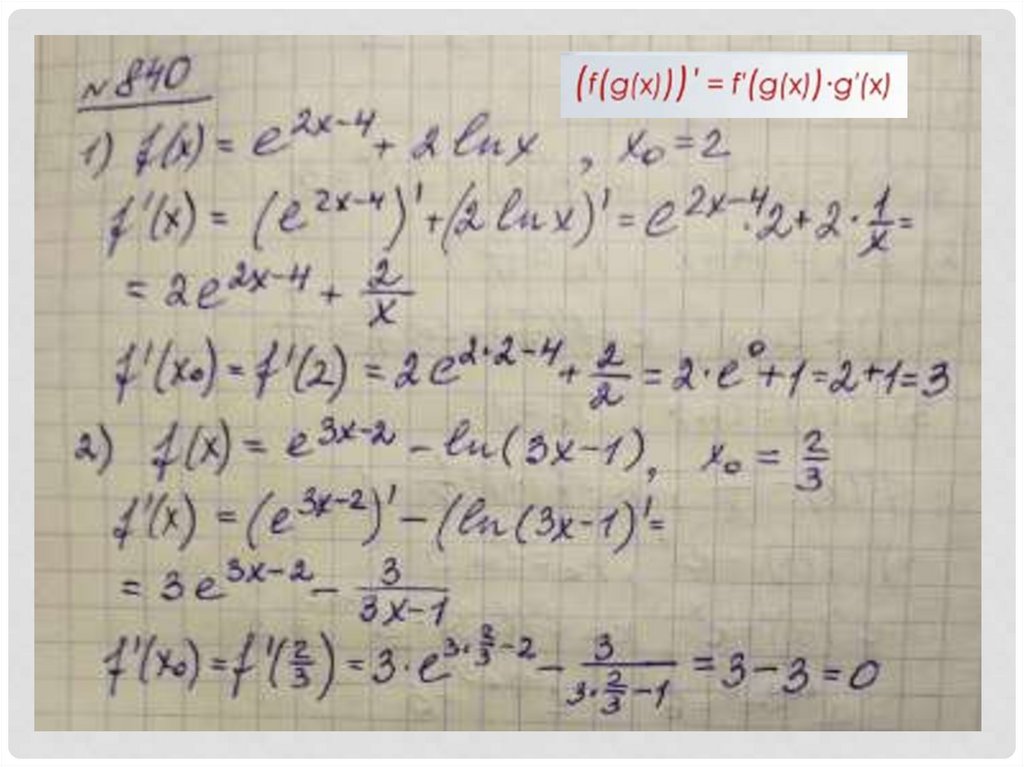 № 840
(f(g(x)))' = f'(g(x))·g'(x)
1) f(x) = e^{2x-4} + 2 ln x , x₀ = 2
f'(x) = (e^{2x-4})' + (2 ln x)' = e^{2x-4}·2 + 2·\frac{1}{x} =
= 2e^{2x-4} + \frac{2}{x}
f'(x₀) = f'(2) = 2e^{2·2-4} + \frac{2}{2} = 2·e^0 + 1 = 2+1 = 3
2) f(x) = e^{3x-2} - ln(3x-1), x₀ = \frac{2}{3}
f'(x) = (e^{3x-2})' - (ln(3x-1)' =
= 3e^{3x-2} - \frac{3}{3x-1}
f'(x₀) = f'(\frac{2}{3}) = 3·e^{3·\frac{2}{3}-2} - \frac{3}{3·\frac{2}{3}-1} = 3-3 = 0